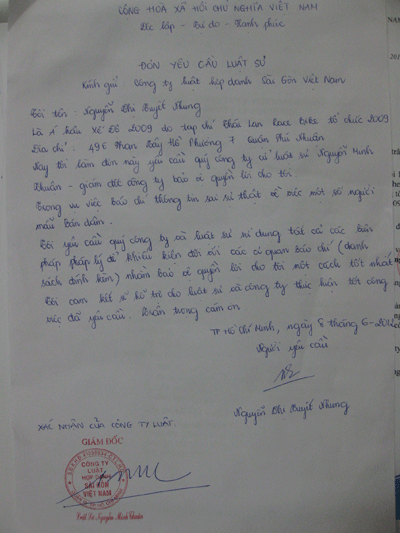 CỘNG HOÀ XÃ HỘI CHỦ NGHĨA VIỆT NAM
Độc lập - Tự do - Hạnh phúc
ĐƠN YÊU CẦU LUẬT SƯ
Kính gửi Công ty luật hợp danh Sài Gòn Việt Nam
Tôi tên: Nguyễn Thị Tuyết Nhung
Là Á hậu Xe Độ 2009 do tạp chí Thái Lan Race Bike tổ chức 2009
Địa chỉ: 49E Phan Đăng Phường 7 Quận Phú Nhuận
Nay tôi làm đơn này yêu cầu quý công ty cử luật sư Nguyễn Minh
Thuận - giám đốc công ty bảo vệ quyền lợi cho tôi.
Trong vụ việc báo chí thông tin sai sự thật về việc một số người
mẫu bán dâm.
Tôi yêu cầu quý công ty và luật sư sử dụng tất cả các biện
pháp pháp lý để khiếu kiện đối với các cơ quan báo chí (danh
sách đính kèm) nhằm bảo vệ quyền lợi cho tôi một cách tốt nhất
Tôi cam kết sẽ hỗ trợ cho luật sư và công ty thực hiện tốt công
việc đã yêu cầu. Trân trọng cảm ơn
TP Hồ Chí Minh, ngày 8 tháng 6-2012
Người yêu cầu
Nguyễn Thị Tuyết Nhung
XÁC NHẬN CỦA CÔNG TY LUẬT
GIÁM ĐỐC
CÔNG TY
LUẬT
HỢP DANH
SÀI GÒN
VIỆT NAM
Luật Sư Nguyễn Minh Thuận